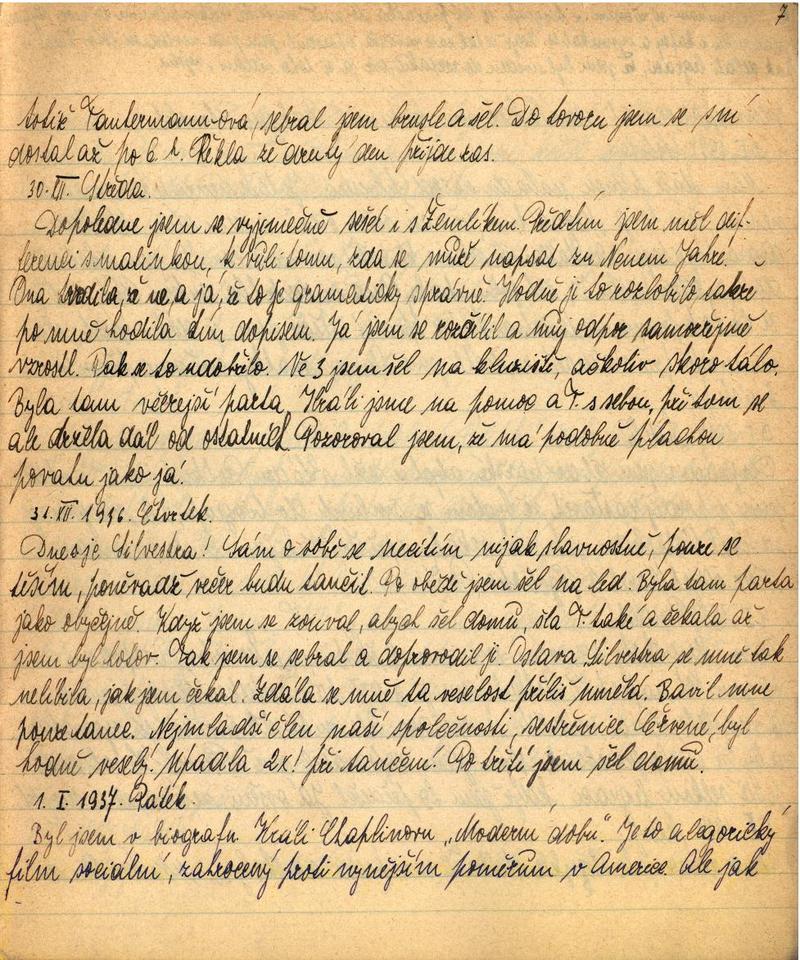 7
totiž Fantermann-ová, sebral jsem brusle a šel. Do hovoru jsem se s ní
dostal až po 6 h. Řekla že druhý den přijde zas.
30. XII. Středa.
Dopoledne jsem se vyjímečně sešel i s Zemlíkem. Předtím jsem měl dif-
ferenci s maminkou, k vůli tomu, zda se může napsat zu Neuem Jahre.
Ona tvrdila, že ne, a já, že to je gramaticky správně. Hodně ji to rozlobilo takže
po mně hodila tím dopisem. Já jsem se rozčílil a můj odpor samozřejmě
vzrostl. Pak se to udobřilo. Ve 3 jsem šel na kluziště, ačkoliv skoro tálo.
Byla tam včerejší parta. Hráli jsme na pomoc a F. s sebou, při tom se
ale držela dál od ostatních. Pozoroval jsem, že má podobně plachou
povahu jako já.
31. XII. 1936. Čtvrtek.
Dnes je Silvestra! Sám o sobě se necítím nijak slavnostně, pouze se
těším, poněvadž večer budu tančit. Po obědě jsem šel na led. Byla tam parta
jako obyčejně. Když jsem se zouval, abych šel domů, šla F. také a čekala až
jsem byl hotov. Tak jsem se sebral a doprovodil ji. Oslava Silvestra se mně tak
nelíbila, jak jsem čekal. Zdála se mně ta veselost příliš umělá. Bavil mne
pouze tanec. Nejmladší člen naší společnosti, sestřenice Červené, byl
hodně veselý. Upadla 2x! při tančení. Po třetí jsem šel domů.
1. I. 1937. Pátek.
Byl jsem v biografu. Hráli Chaplinovu „Moderní dobu“. Je to alegorický
film sociální, zahrocený proti nynějším poměrům v Americe. Ale jak